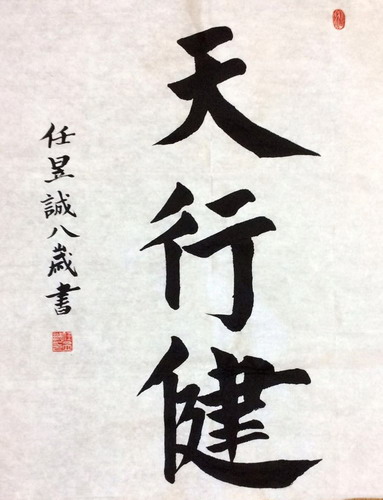 天行健
任昱誠八歲書